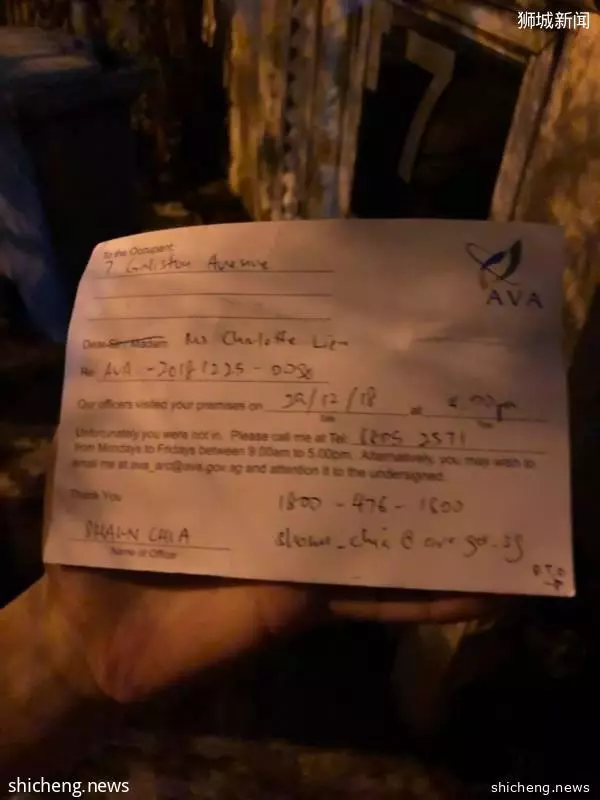 狮城新闻
7
To the Occupant
7 Galistan Avenue
AVA
Dear Sir, Madam Ms Charlotte
Re AVA - 20181225 -
Our officers visited your premises on 29/12/18 at
Date Time
Unfortunately you were not in. Please call me at Tel: 6805 2571
from Mondays to Fridays between 9.00am to 5.00pm. Alternatively, you may wish to
email me at ava_arc@ava.gov.sg and attention it to the undersigned.
Thank You
1800 - 476 - 1600
SHAUN CHIA
Name of Officer
PTO
shicheng.news
shicheng.news